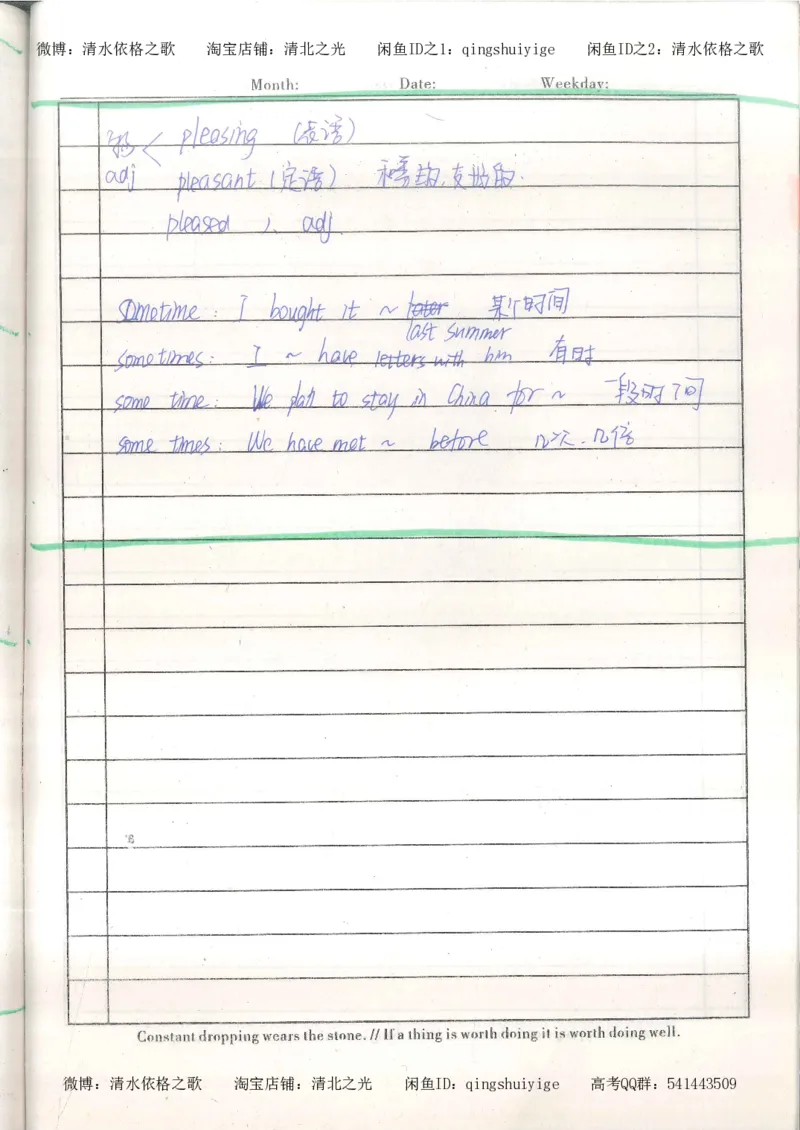 微博：清水依格之歌 淘宝店铺：清北之光 闲鱼ID之1：qingshuiyige 闲鱼ID之2：清水依格之歌
Month: Date: Weekday:
pleasing (表语)
adj pleasant (定语) 和善的,友好的.
pleased adj
Sometime: I bought it ~ later 某个时间
last summer
sometimes: I ~ have letters with him 有时
some time: We plan to stay in China for ~ 一段时间
some times: We have met ~ before 几次.几倍
Constant dropping wears the stone. // If a thing is worth doing it is worth doing well.
微博：清水依格之歌 淘宝店铺：清北之光 闲鱼ID：qingshuiyige 高考QQ群：541443509